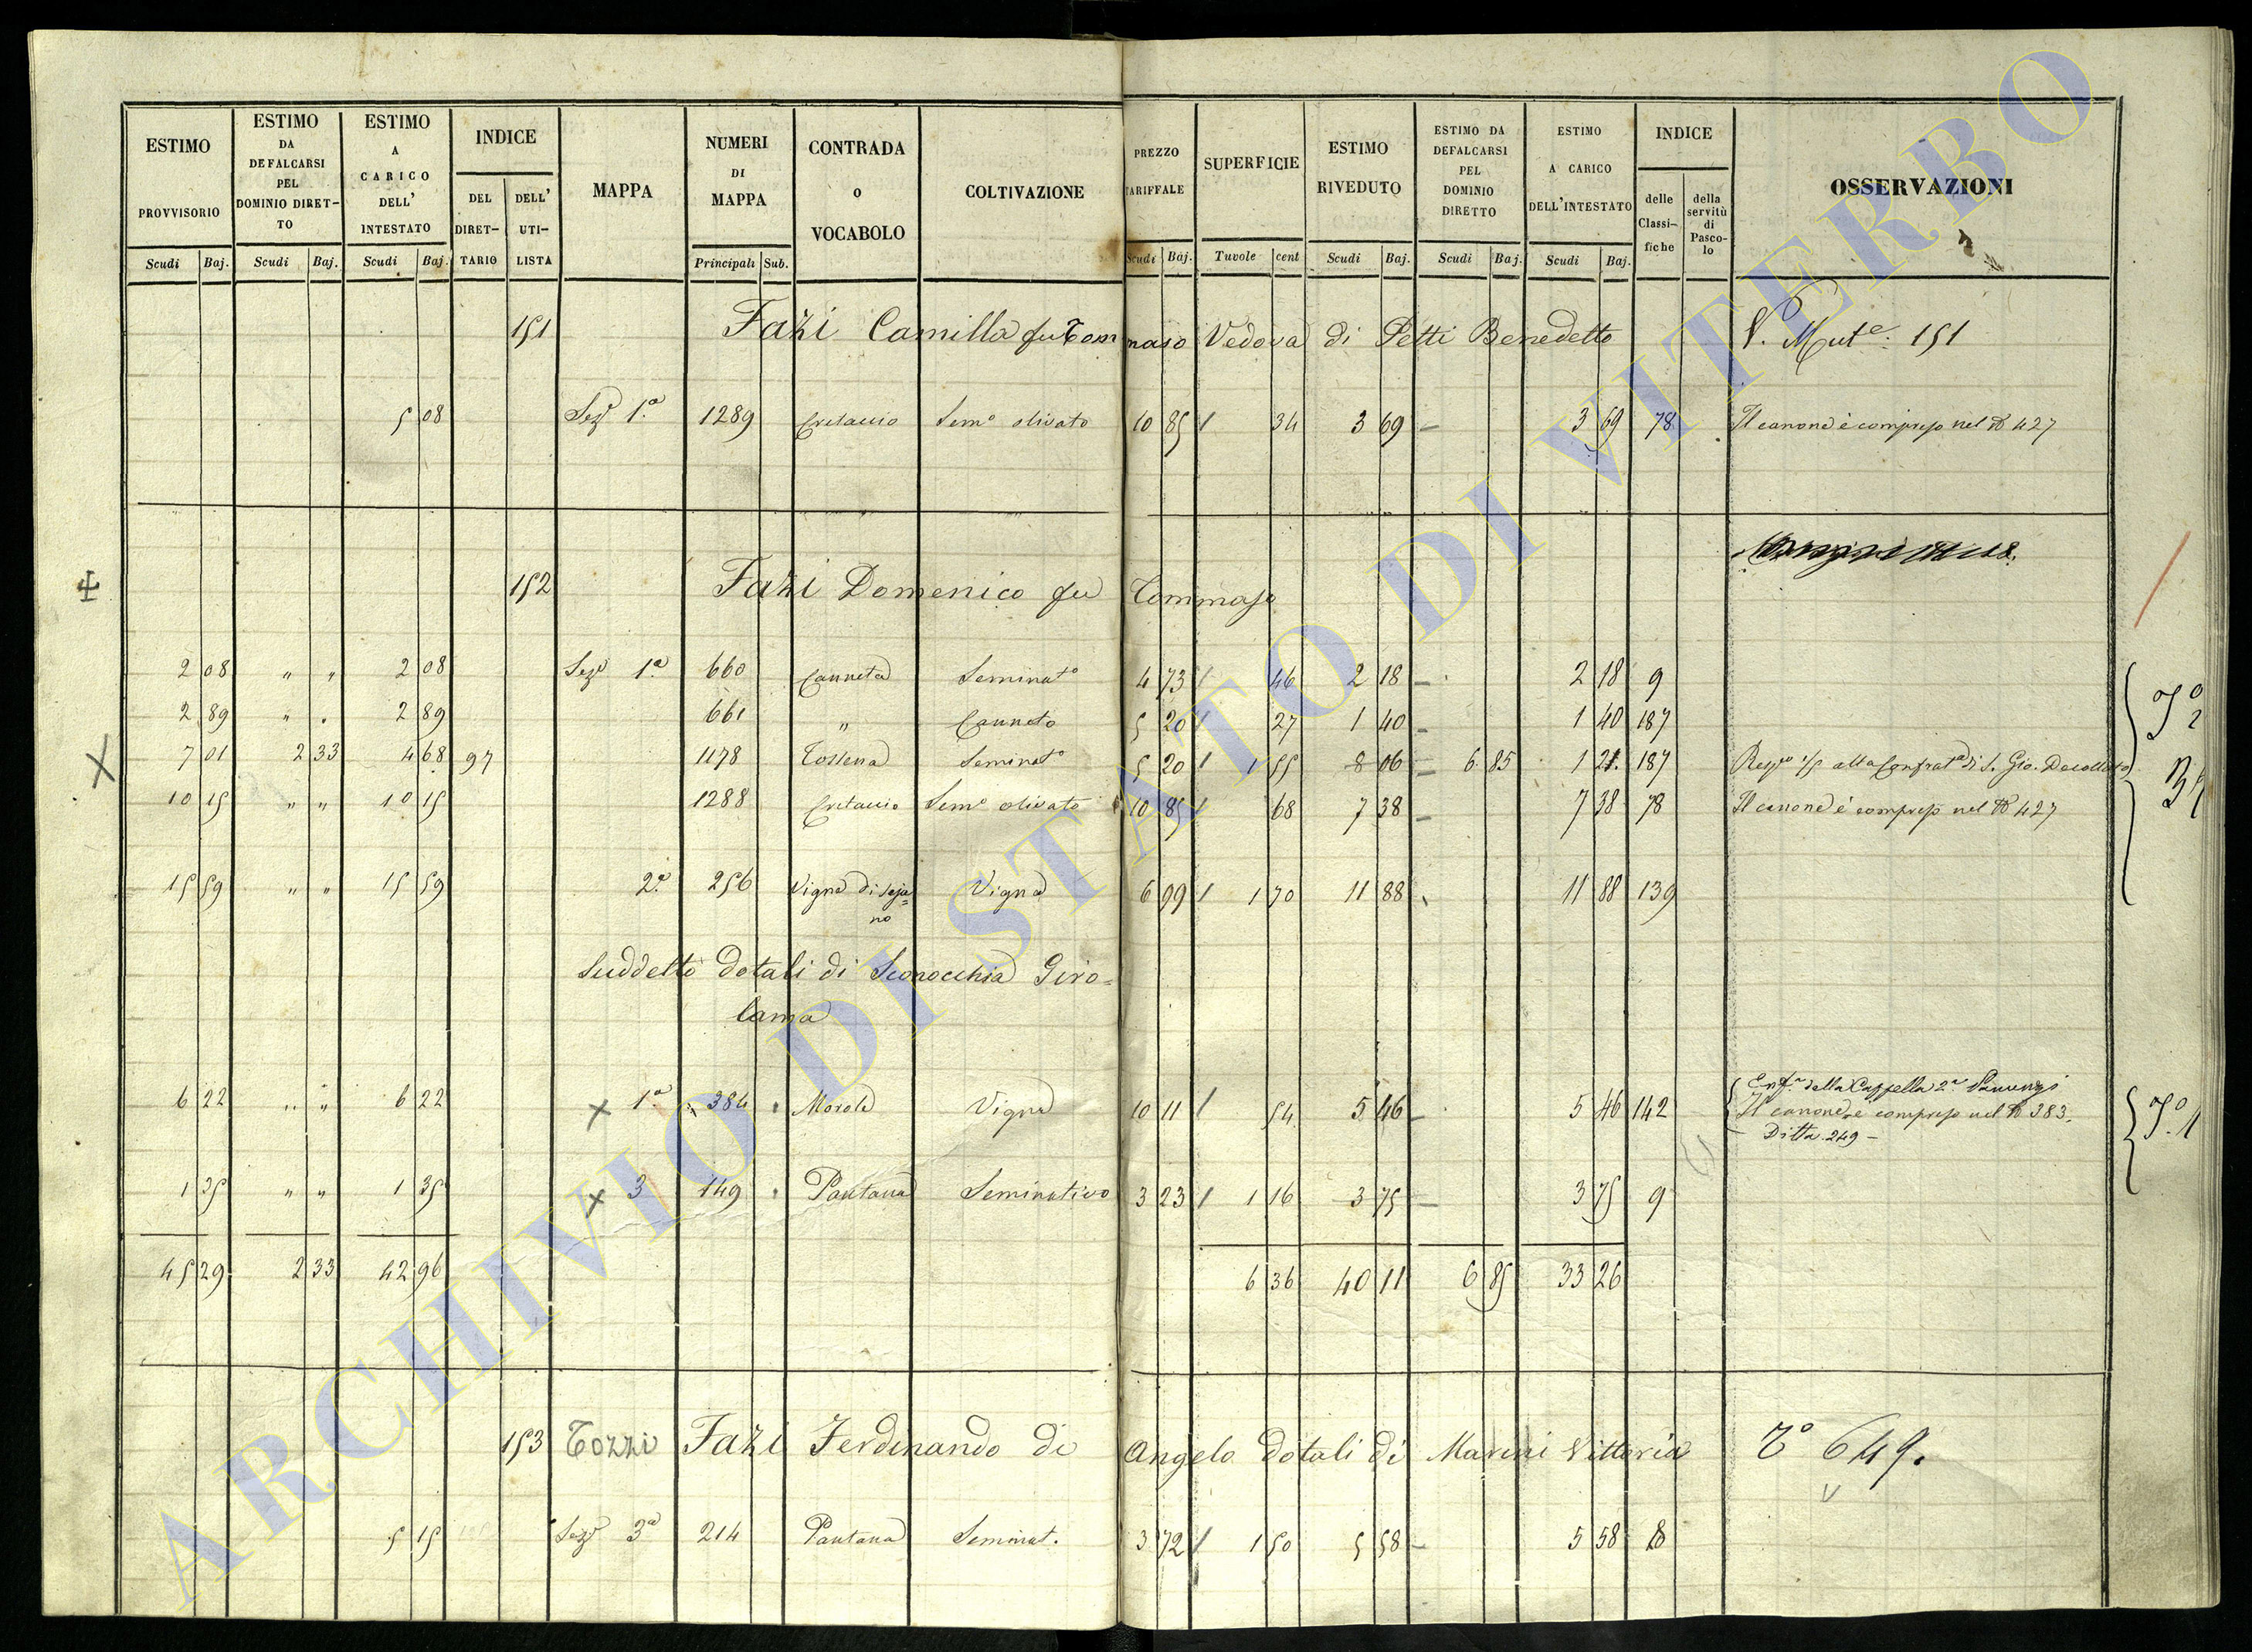 ESTIMO PROVVISORIO | ESTIMO DA DEFALCARSI PEL DOMINIO DIRETTO | ESTIMO A CARICO DELL' INTESTATO | INDICE DEL DIRETTARIO | DELL' UTILISTA | MAPPA | NUMERI DI MAPPA | CONTRADA o VOCABOLO | COLTIVAZIONE | PREZZO TARIFFALE | SUPERFICIE | ESTIMO RIVEDUTO | ESTIMO DA DEFALCARSI PEL DOMINIO DIRETTO | ESTIMO A CARICO DELL'INTESTATO | INDICE delle Classifiche | della servitù di Pascolo | OSSERVAZIONI
Scudi Baj. | Scudi Baj. | Scudi Baj. | Principali Sub. | Scudi Baj. | Tavole cent | Scudi Baj. | Scudi Baj. | Scudi Baj.
151 Fazi Camilla fu Tommaso Vedova di Petti Benedetto V. Mut.e: 151
5 08 Sez.e 1.a 1289 Cretaccio Sem.o olivato 10 85 / 34 3 69 — 3 69 78 Il canone è compreso nel N 427
152 Fazi Domenico fu Tommaso
2 08 " " 2 08 Sez.e 1.a 660 Canneta Seminat.o 4 73 / 46 2 18 — 2 18 9
2 89 " " 2 89 661 " Canneto 5 20 / 27 1 40 — 1 40 187
7 01 2 33 4 68 97 1178 Seminat.o 5 20 / 1 55 8 06 — 6 85 1 21 187 alla Confrat.a di S. Gio. Decollato
10 15 " " 10 15 1288 Cretaccio Sem.o olivato 10 85 / 68 7 38 — 7 38 78 Il canone è compreso nel N 427
15 59 " " 15 59 2.a 256 Vigna di Sejano Vigna 6 99 / 1 70 11 88 11 88 139
Suddetto dotali di Sconocchia Giro=
lama
6 22 " " 6 22 x 1.a 384 Morola Vigna 10 11 / 54 5 46 — 5 46 142 Enf.a della Cappella 2a
Il canone è compreso nel N 383.
Ditta 249 —
1 35 " " 1 35 x 3 149 Pantana Seminativo 3 23 / 1 16 3 75 — 3 75 9
45 29 2 33 42 96 6 36 40 11 6 85 33 26
153 Tozzi Fazi Ferdinando di Angelo dotali di Marini Vittoria T.o 649.
5 15 Sez.e 3.a 214 Pantana Seminat. 3 72 / 1 50 5 58 — 5 58 8
ARCHIVIO DI STATO DI VITERBO